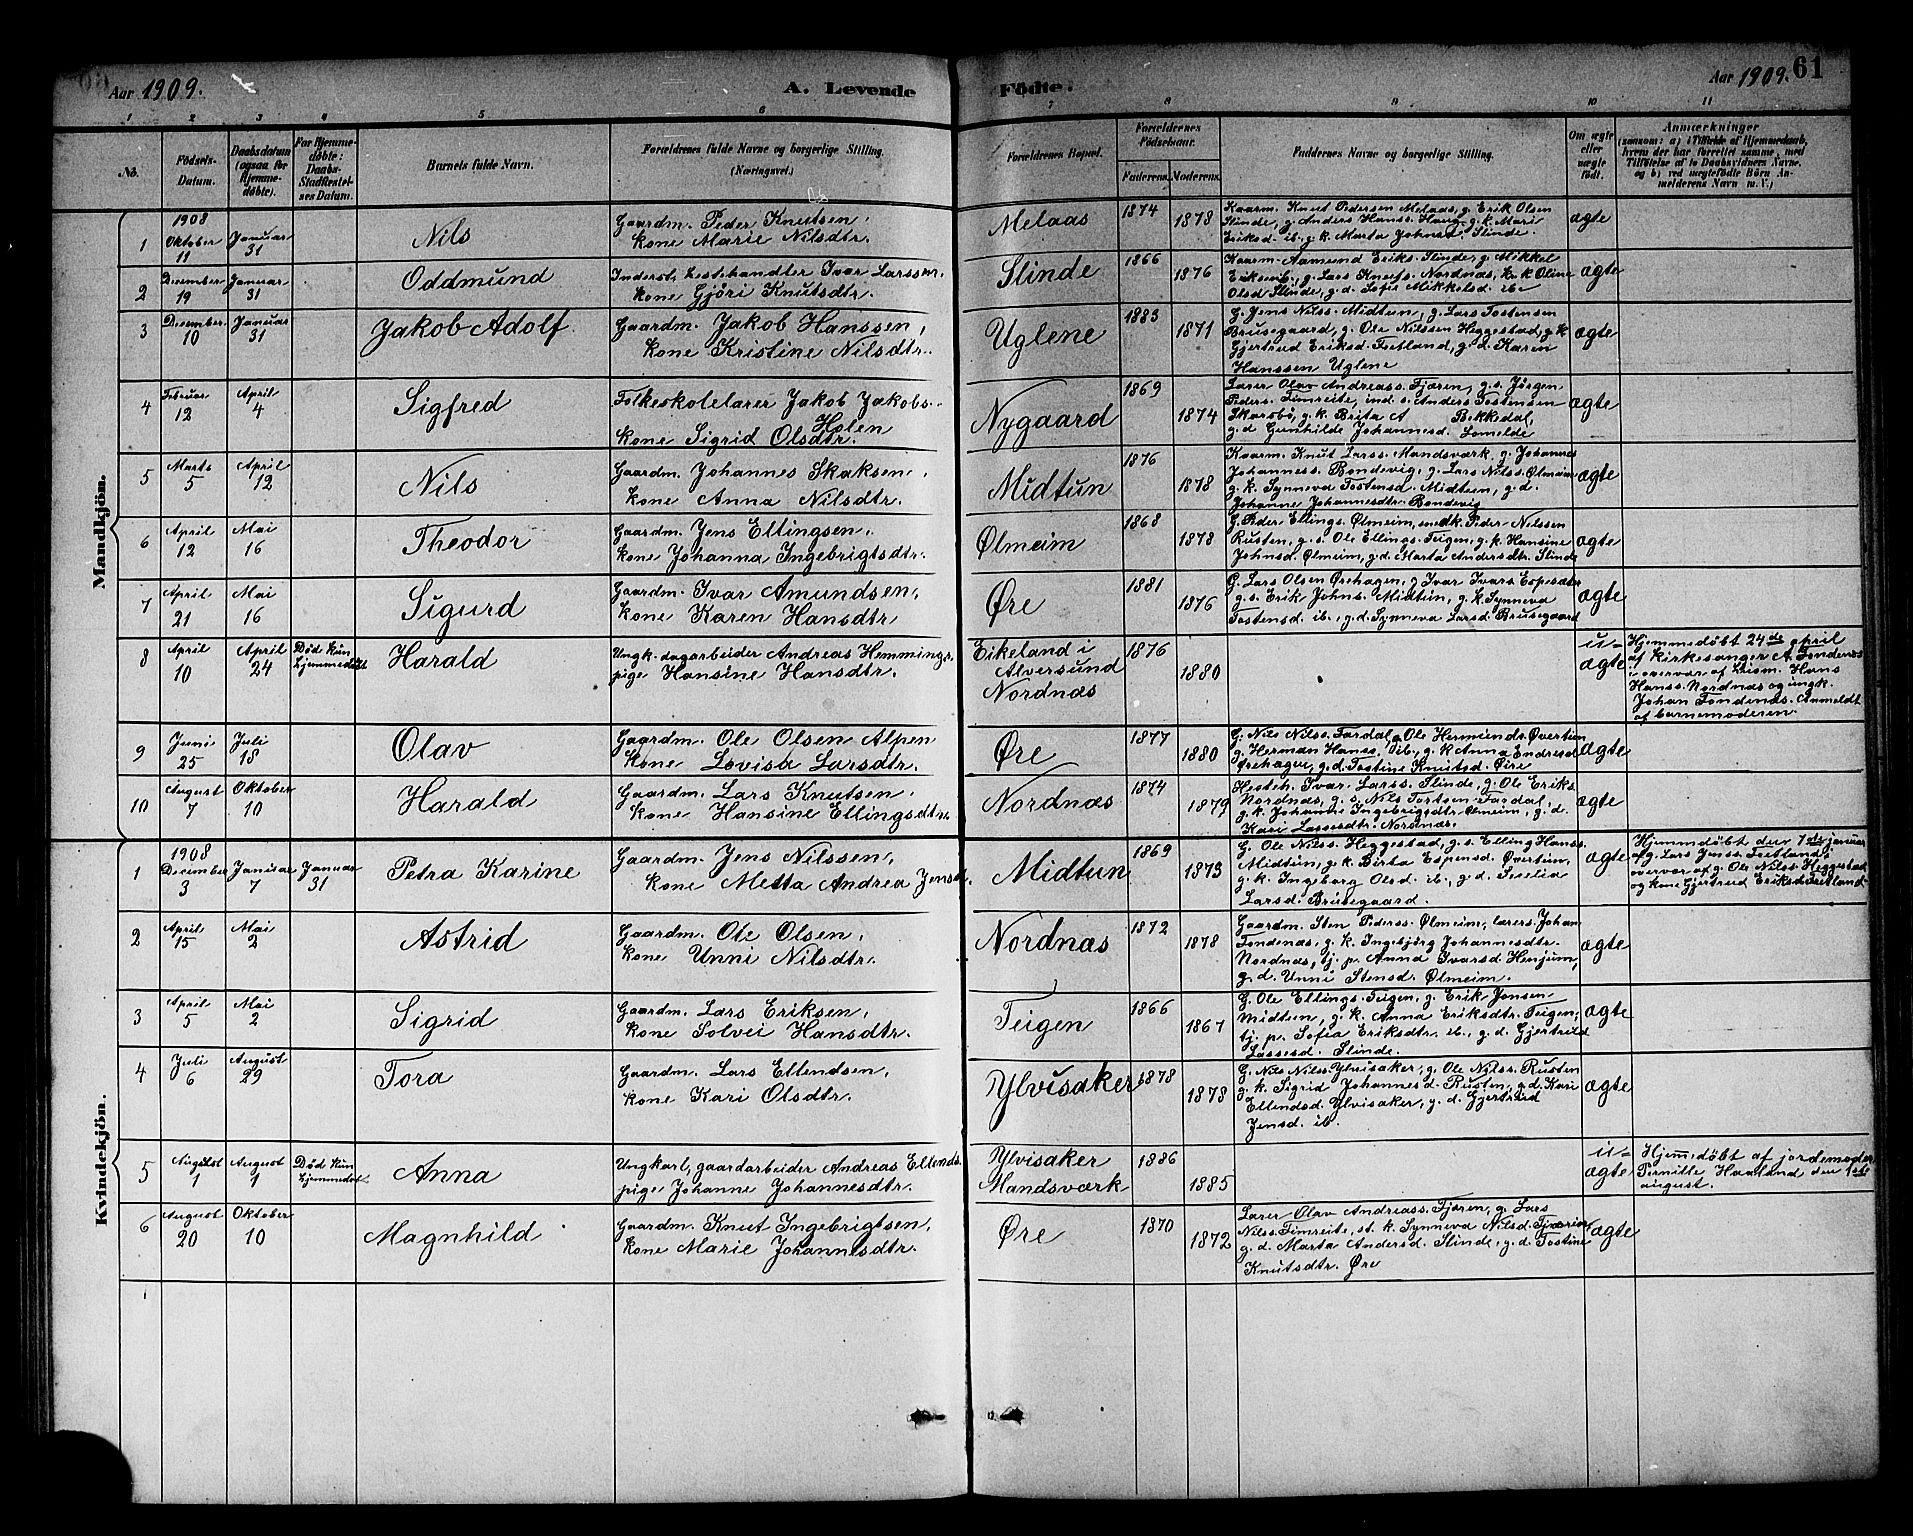 Aar 1909.
A. Levende
Födte.
Aar 1909. 61
1 2 3 4 5 6 7 8 9 10 11
No.
Födsels-
Datum.
Daabsdatum
(ogsaa for
Hjemme-
döbte).
For Hjemme-
döbte:
Daabs-
Stadfæstel-
ses Datum.
Barnets fulde Navn.
Forældrenes fulde Navne og borgerlige Stilling.
(Næringsvei.)
Forældrenes Bopæl.
Forældrenes
Födselsaar.
Faderens. Moderens.
Faddernes Navne og borgerlige Stilling.
Om ægte
eller
uægte
födt.
Anmærkninger
(saasom: a) i Tilfælde af Hjemmedaab,
hvem der har forrettet samme, med
Tilföielse af to Daabsvidners Navne,
og b) ved uægtefödte Börn An-
melderens Navn m. V.)
Mandkjön.
1
1908
Oktober
11
Januar
31
Nils
Gaardm. Peder Knutsen,
kone Marie Nilsdtr.
Melaas
1874
1878
Kaarm. Knut Pedersen Melaas, g. Erik Olsen
Slinde, g. Anders Hanss. Haug, g. k. Mari
Eriksd. ib. g. k. Marta Johnsd. Slinde.
ægte
2
December
19
Januar
31
Oddmund
Inderst, hestehandler Ivar Larssen,
kone Gjöri Knutsdtr.
Slinde
1866
1876
Kaarm. Aamund Eriks. Slinde, g. Mikkel
Eriksen ib., g. Lars Knuts. Nordnæs, k. Oline
Olsd Slinde, g. d. Sofie Mikkelsd. ib.
ægte
3
December
10
Januar
31
Jakob Adolf
Gaardm. Jakob Hanssen,
kone Kristine Nilsdtr.
Uglene
1883
1871
G. Jens Nilss. Midtun, g. Lars Tostensen
Brusegaard, g. Ole Nilssen Heggestad, g. k
Gjertrud Eriksd. Fretland, g. d. Karen
Hanssen Uglene
ægte
4
Februar
12
April
4
Sigfred
Folkeskolelærer Jakob Jakobs.
Holen
kone Sigrid Olsdtr.
Nygaard
1869
1874
Lærer Olav Andreass. Fjæren, g. s. Jörgen
Peders. Timreite, ind. s. Anders Tostensen
Skarsbö, g. k. Brita A Bekkedal,
g. d Gunhilde Johannesd. Lomelde
ægte
5
Marts
5
April
12
Nils
Gaardm. Johannes Skaksen,
kone Anna Nilsdtr.
Midtun
1876
1878
Kaarm. Knut Larss. Mandsværk, g. Johannes
Johanness. Bondevig, g. Lars Nils. Ølmeim
g. k. Synneva Tostensd. Midtun, g. d.
Johanne Johannesdtr. Bondevig
ægte
6
April
12
Mai
16
Theodor
Gaardm. Jens Ellingsen,
kone Johanna Ingebrigtsdtr.
Ølmeim
1868
1878
G. Peder Ellings. Ølmeim, smedk. Peder Nilssen
Rusten, g. s. Ole Ellings. Teigen, g. p. Hansine
Johnsd. Ølmeim, g. d. Marta Andersdtr. Slinde
ægte
7
April
21
Mai
16
Sigurd
Gaardm. Ivar Amundsen,
kone Karen Hansdtr
Øre
1881
1876
G. Lars Olsen Ørehagen, g Ivar Ivars Espesæter
g. s. Erik Johns. Midtun, g. k. Synneva
Tostensd. ib., g. d. Synneva Larsd. Brusegaard
ægte
8
April
10
April
24
Död kun
hjemmedöbt
Harald
Ungk. dagarbeider Andreas Hemmings.
pige Hansine Hansdtr.
Eikeland i
Alversund
Nordnæs
1876
1880
u-
ægte
Hjemmedöbt 24de april
af kirkesanger A. Tondenæs
i overvær af Hans
Hanss. Nordnæs og ungk.
Johan Tondenæs. Anmeldt
af barnemoderen.
9
Juni
25
Juli
18
Olav
Gaardm. Ole Olsen Alpen
kone Lovisa Larsdtr.
Øre
1877
1880
G. Nils Nilss. Fardal, Ole Hermunds Øvertun
g. Herman Hanss. ib., g. k Anna Endresd
Ørehagen, g. d. Tostine Knutsd. Øire
ægte
10
August
7
Oktober
10
Harald
Gaardm. Lars Knutsen,
kone Hansine Ellingsdtr.
Nordnæs
1874
1879
Hesteh. Ivar Larss. Slinde, g. Ole Eriks.
Nordnæs, g. s. Nils Tortsen Fardal,
g. k. Johanne Ingebrigtsdtr. Ølmeim, g. d.
Kari Lassesdtr. Nordnæs.
ægte
Kvindekjön.
1
1908
December
3
Januar
7
Januar
31
Petra Karine
Gaardm. Jens Nilssen,
kone Metta Andrea Jensd.
Midtun
1869
1873
G. Ole Nilss. Heggestad, g. s. Elling Hans.
Midtun, g. k. Birta Espensd. Øvertun,
g. k. Ingeborg Olsd. ib., g. d.
Larsd. Brusegaard.
ægte
Hjemmdöbt den 7de januar
af g. Lars Jenss. Fretland i
overvær af g. Ole Nilss. Heggestad
og kone Gjertrud Eriksd. Fretland
2
April
15
Mai
2
Astrid
Gaardm. Ole Olsen,
kone Unni Nilsdtr.
Nordnæs
1872
1878
Gaardm. Sten Pederss. Ølmeim, lærers. Johan
Tondenæs, g. k. Ingebjörg Johannesdtr.
Nordnæs, tj. p. Anna Ivarsd Henjum,
g. d. Unni Stensd. Ølmeim.
ægte
3
April
5
Mai
2
Sigrid
Gaardm. Lars Eriksen,
kone Solvei Hansdtr.
Teigen
1866
1867
G. Ole Ellings. Teigen, g. Erik Jonsen
Midtun, g. k. Anna Eriksdtr. Teigen,
tj. p. Sofia Eriksdtr. ib., g. d. Gjertrud
Lassesd. Slinde.
ægte
4
Juli
6
August
29
Tora
Gaardm. Lars Ellendsen,
kone Kari Olsdtr.
Ylvisaker
1878
1878
G. Nils Nilss. Ylvisaker, g. Ole Nilss. Rusten
g. k. Sigrid Johannesd. Rusten, g. d. Kari
Ellendsd. Ylvisaker, g. d. Gjertrud
Jensd. ib.
ægte
5
August
1
August
1
Död kun
hjemmedöbt
Anna
Ungkarl, gaardarbeider Andreas Ellends.
pige Johanne Johannesdtr.
Ylvisaker
Mandsværk
1886
1885
u-
ægte
Hjemmedöbt af jordemoder
Pernille Haaland den 1ste
august.
6
August
20
Oktober
10
Magnhild
Gaardm. Knut Ingebrigtsen,
kone Marie Johannesdtr.
Øre
1870
1872
Lærer Olav Andreass. Fjæren, g. Lars
Nilss. Timreite, st. k. Synneva Nilsd. Fjæren
g. d. Marta Andersd. Slinde, g. d. Tostine
Knutsdtr. Øre
ægte